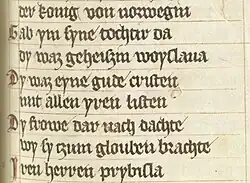 der konig von norwegin
Gab ym syne tochtir da
dy waz geheisin woyslaua
Dy waz eyne gude cristen
mit allen yren listen
Dy frowe dar nach dachte
wy sy czum glouben brachte
Iren herren prybisla